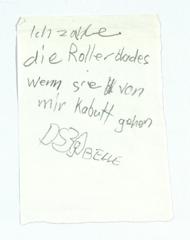 Ich zahle
die Rollerblades
wenn sie von
mir Kabutt gehen